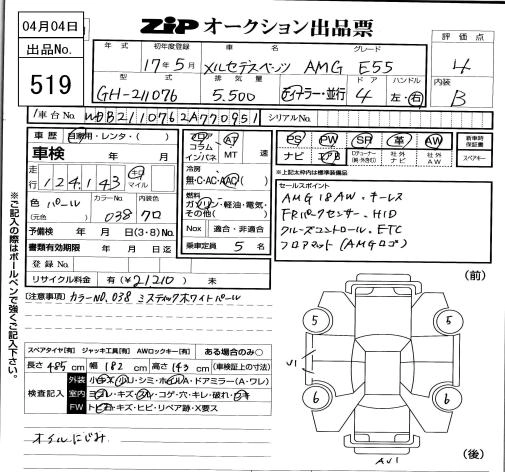 04月04日
出品No.
519
ZIP オークション出品票
評価点
4
内装
B
年式 初年度登録 車名 グレード
17年5月 メルセデスベンツ AMG E55
型式 排気量 ドア ハンドル
GH-211076 5.500 ディーラー・並行 4 左・右
車台No. WDB2110762A770951 シリアルNo.
車歴 自家用・レンタ・( )
車検 年 月
走行 124.143 キロ マイル
色 パール カラーNo. 038 内装色 クロ
(元色)
予備検 年 月 日(3・8)No.
書類有効期限 年 月 日迄
登録No.
リサイクル料金 有(¥21210) 未
フロア コラム インパネ AT MT 速
冷房 無・C・AC・AAC( )
燃料 ガソリン・軽油・電気・その他( )
Nox 適合・非適合
乗車定員 5 名
PS PW SR 革 AW 新車時保証書
ナビ エアB 社外ナビ 社外AW スペアキー
※上記太枠内は標準装備品
セールスポイント
AMG 18AW. キーレス
FRパークセンサー. HID
クルーズコントロール. ETC
フロアマット(AMGロゴ)
[注意事項] カラーNO.038 ミスティックホワイトパール
スペアタイヤ[有] ジャッキ工具[有] AWロックキー[有] ある場合のみ○
長さ 485 cm 幅 182 cm 高さ 143 cm (車検証上の寸法)
検査記入
外装 小キズ・小U・シミ・ホイルA・ドアミラー(A・ワレ)
室内 ヨゴレ・キズ・スレ・コゲ・穴・キレ・破れ・
FW トビ石・キズ・ヒビ・リペア跡・X要ス
オイルにじみ
※ご記入の際はボールペンで強くご記入下さい。
(前)
5 5
6 6
(後)